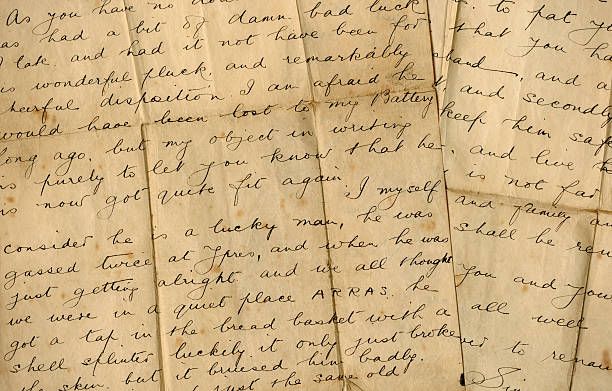 As you have no dou
as had a bit of damn bad luck
late, and had it not have been for
is wonderful pluck, and remarkably
heerful disposition I am afraid he
would have been lost to my Battery
long ago. but my object in writing
is purely to let you know that he
is now got quite fit again. I myself
consider he is a lucky man, he was
gassed twice at Ypres, and when he was
just getting alright and we all thought
we were in a quiet place ARRAS. he
got a tap in the bread basket with a
shell splinter luckily it only just broke
e skin, but it bruised him badly.
just the same old
to pat yo
that you ha
sband, and a
and secondly
keep him safe
and live th
is not far
and family an
shall he ren
you and you
all well
to remai
S.